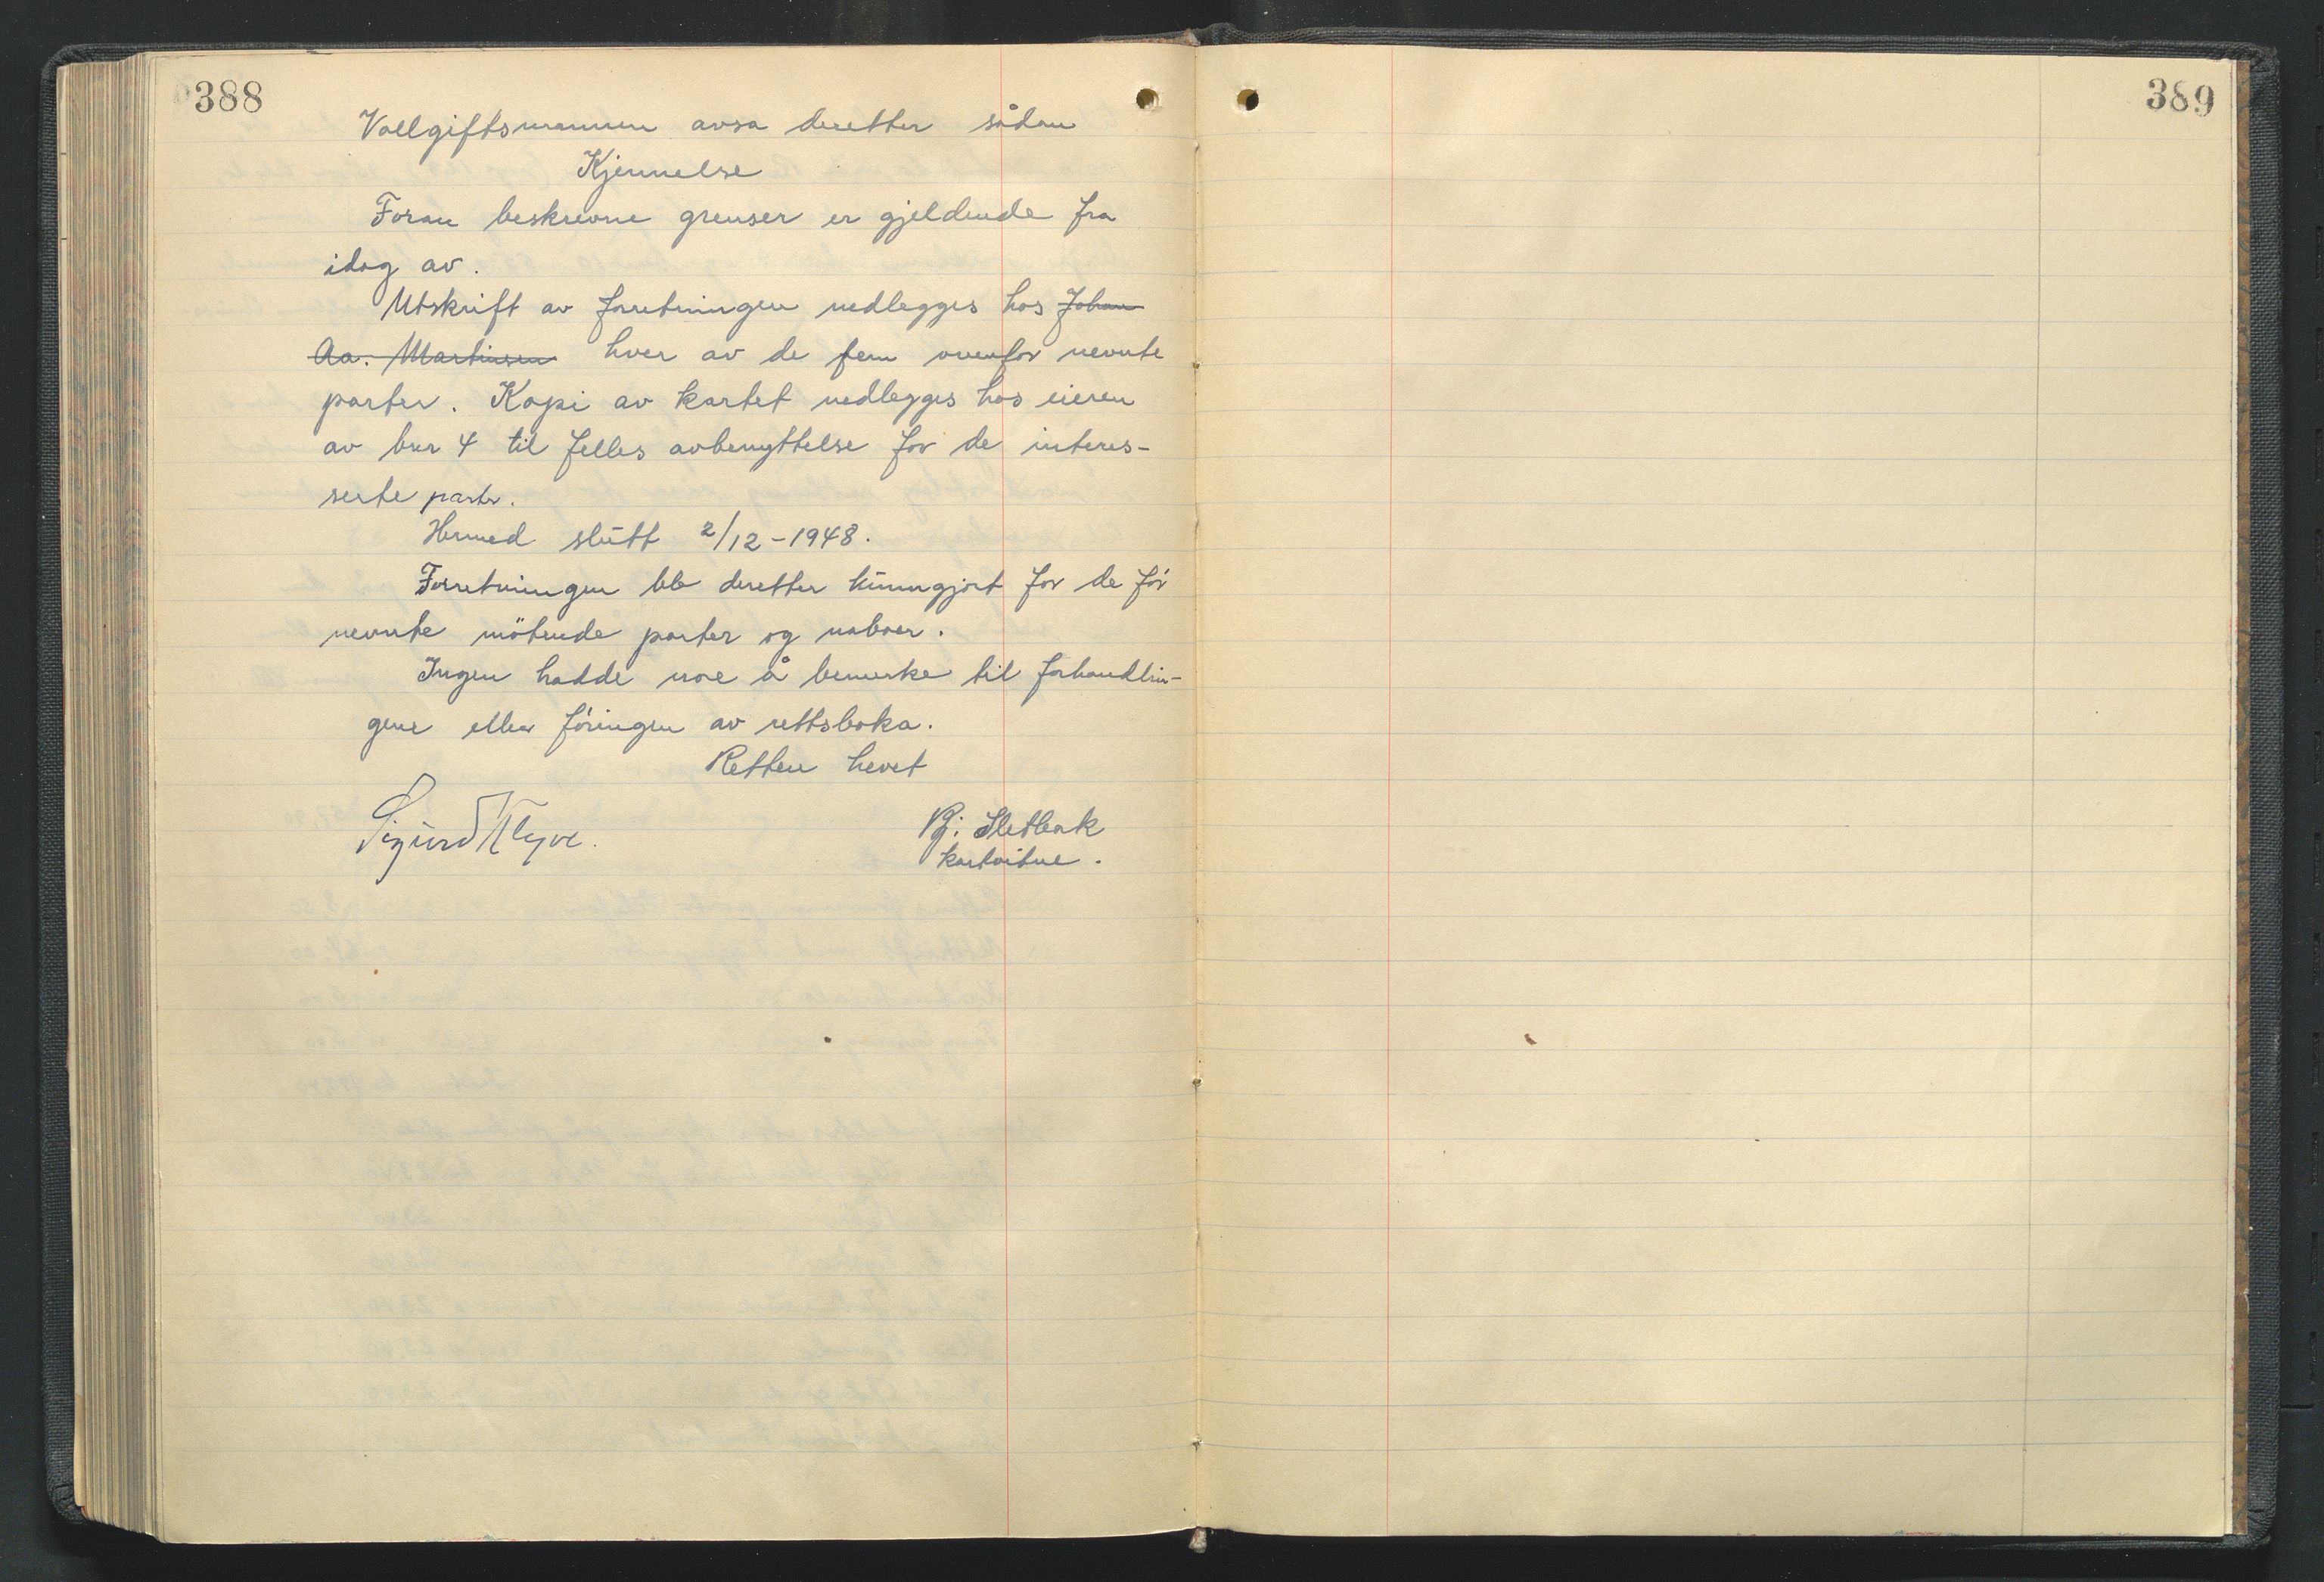 388
389
Vollgiftsmannen avsa deretter sådan
Kjennelse
Foran beskrevne grenser er gjeldende fra
idag av.
Utskrift av forretningen nedlegges hos Johan
Aa. Martinsen hver av de fem ovenfor nevnte
parter. Kopi av kartet nedlegges hos eieren
av bnr 4 til felles avbenyttelse for de interes-
serte parter.
Hermed slutt 2/12-1948.
Forretningen ble deretter kunngjort for de før
nevnte møtende parter og naboer.
Ingen hadde noe å bemerke til forhandlin-
gene eller føringen av rettsboka.
Retten hevet
Sigurd Kleyve. Bj. Sletbak
kartvitne.